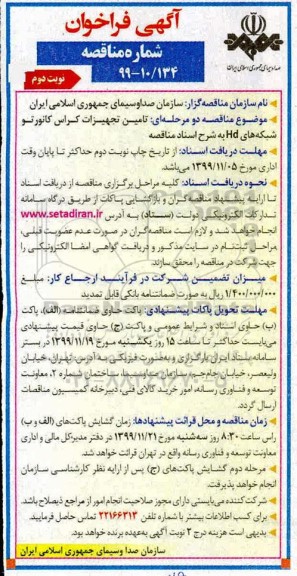 آگهی فراخوان
شماره مناقصه
۹۹-۱۰/۱۳۴
نوبت دوم
صدا و سیمای جمهوری اسلامی ایران
نام سازمان مناقصه‌گزار: سازمان صداوسیمای جمهوری اسلامی ایران
موضوع مناقصه دو مرحله‌ای: تامین تجهیزات کراس کانورتو
شبکه‌های Hd به شرح اسناد مناقصه
مهلت دریافت اسناد: از تاریخ چاپ نوبت دوم حداکثر تا پایان وقت
اداری مورخ ۱۳۹۹/۱۱/۰۵ می‌باشد.
نحوه دریافت اسناد: کلیه مراحل برگزاری مناقصه از دریافت اسناد
تا ارایه پیشنهاد مناقصه‌گران و بازگشایی پاکات از طریق درگاه سامانه
تدارکات الکترونیکی دولت (ستاد) به آدرس www.setadiran.ir
انجام خواهد شد و لازم است مناقصه‌گران در صورت عدم عضویت قبلی،
مراحل ثبت‌نام در سایت مذکور و دریافت گواهی امضا الکترونیکی را
جهت شرکت در مناقصه را محقق سازند.
میزان تضمین شرکت در فرآیند ارجاع کار: مبلغ
۱/۴۰۰/۰۰۰/۰۰۰ ریال به صورت ضمانتنامه بانکی قابل تمدید
مهلت تحویل پاکات پیشنهادی: پاکت حاوی ضمانتنامه (الف)، پاکت
(ب) حاوی اسناد و شرایط عمومی و پاکت (ج) حاوی قیمت پیشنهادی
می‌بایست حداکثر تا ساعت ۱۵ روز یکشنبه مورخ ۱۳۹۹/۱۱/۱۹ در بستر
سامانه ستاد ایران بارگزاری و به‌صورت فیزیکی به آدرس: تهران، خیابان
ولیعصر، خیابان جام‌جم، سازمان صداوسیما، ساختمان شماره ۲، معاونت
توسعه و فناوری رسانه، امور خرید کالای فنی، دبیرخانه کمیسیون مناقصات
ارسال گردد.
زمان مناقصه و محل قرائت پیشنهادها: زمان گشایش پاکت‌های (الف و ب)
راس ساعت ۸:۳۰ روز سه‌شنبه مورخ ۱۳۹۹/۱۱/۲۱ در دفتر مدیرکل مالی و اداری
معاونت توسعه و فناوری رسانه واقع در تهران قرائت خواهد شد.
مرحله دوم گشایش پاکت‌های (ج) پس از ارایه نظر کارشناسی سازمان
انجام خواهد پذیرفت.
شرکت کننده می‌بایستی دارای مجوز صلاحیت انجام امور از مراجع ذیصلاح باشد.
برای کسب اطلاعات بیشتر با شماره تلفن ۲۲۱۶۶۳۱۳ تماس حاصل فرمایید.
بدیهی است هزینه درج ۲ نوبت آگهی به‌عهده برنده خواهد بود.
سازمان صدا وسیمای جمهوری اسلامی ایران